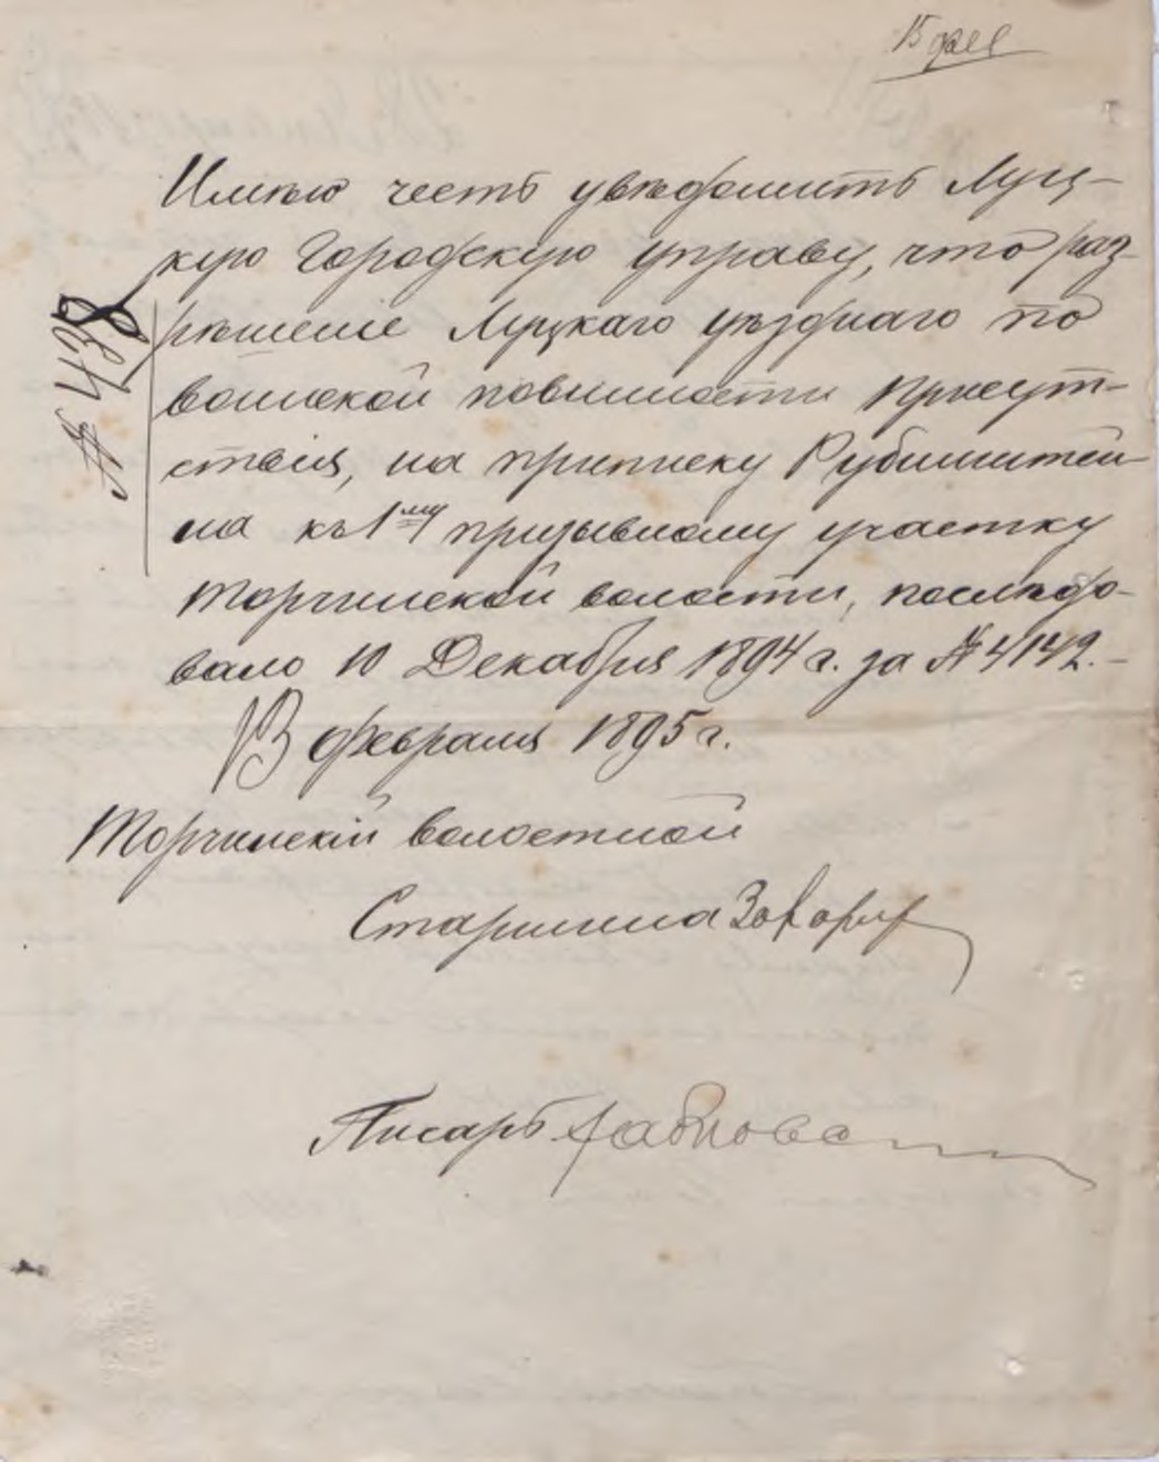 Имѣю честь увѣдомить Луц-
кую Городскую управу, что раз-
рѣшеніе Луцкаго уѣзднаго по
воинской повинности Присут-
ствія, на приписку Рубинштей-
на къ 1му призывному участку
Торчинской волости, послѣдо-
вало 10 Декабря 1894 г. за № 4142.-
13 февраля 1895 г.
Торчинскій волостной
Старшина
Писарь